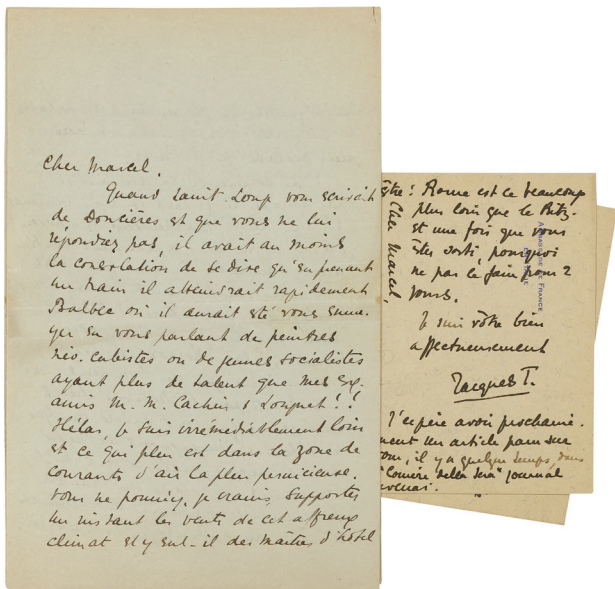 Cher Marcel.
Quand Saint-Loup vous écrivait
de Doncières et que vous ne lui
répondiez pas, il avait au moins
la consolation de se dire qu'en prenant
un train il atteindrait rapidement
Balbec où il aurait été vous ennu-
yer en vous parlant de peintres
néo-cubistes ou de jeunes socialistes
ayant plus de talent que mes ex-
amis M. M. Cachin & Longuet !!
Hélas, je suis irrémédiablement loin
et ce qui plus est dans la zone de
courants d'air la plus pernicieuse.
Vous ne pourriez, je crains, supporter
un instant les vents de cet affreux
climat et y eut-il des maîtres d'hôtel
être! Rome est-ce beaucoup
plus loin que le Ritz.
et une fois que vous
êtes sorti, pourquoi
ne pas le faire pour 2
jours.
Cher Marcel,
Je suis vôtre bien
affectueusement
Jacques T.
J'espère avoir prochaine-
ment un article paru sur
vous, il y a quelque temps, dans
"Corriere della Sera" journal
AMBASSADE DE FRANCE